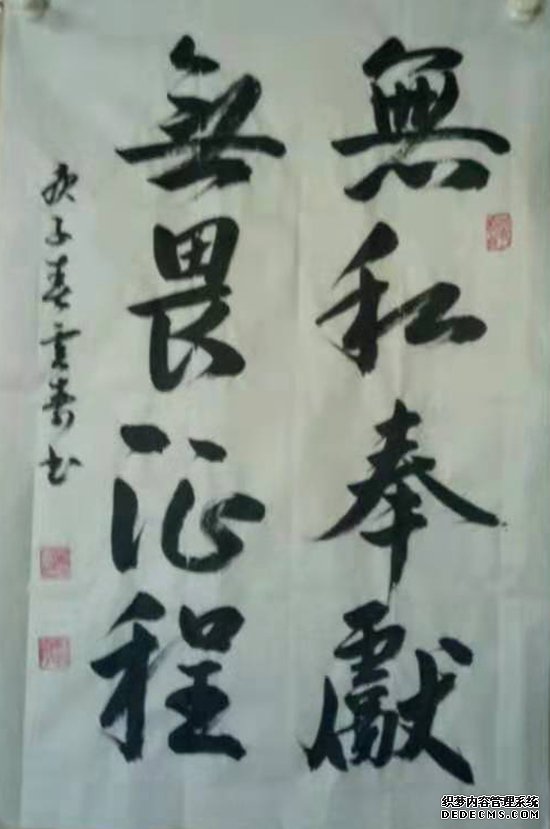 無私奉獻
無畏征程
庚子春雲嵩书
织梦内容管理系统
DEDECMS.COM